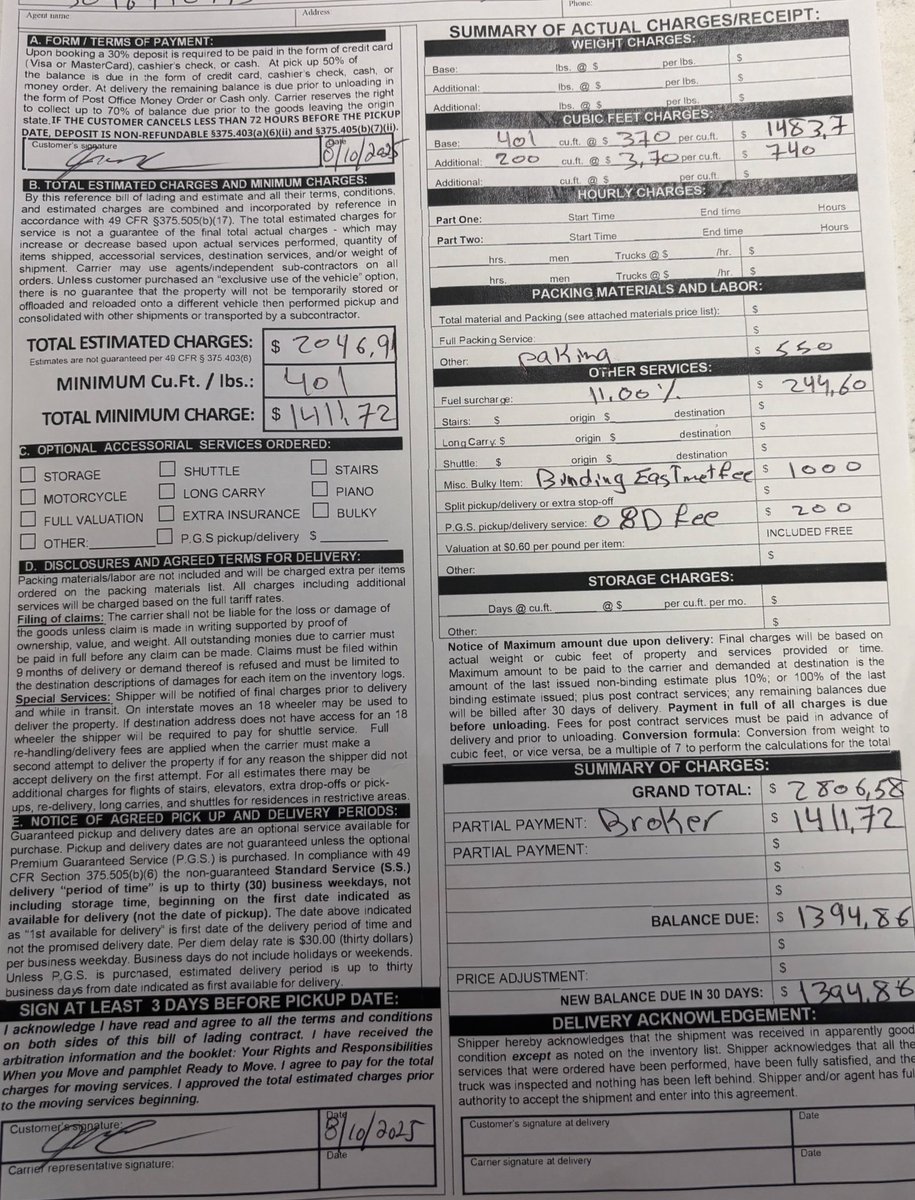 Agent name:
Address:
Phone:
A. FORM / TERMS OF PAYMENT:
Upon booking a 30% deposit is required to be paid in the form of credit card
(Visa or MasterCard), cashier's check, or cash. At pick up 50% of
the balance is due in the form of credit card, cashier's check, cash, or
money order. At delivery the remaining balance is due prior to unloading in
the form of Post Office Money Order or Cash only. Carrier reserves the right
to collect up to 70% of balance due prior to the goods leaving the origin
state, IF THE CUSTOMER CANCELS LESS THAN 72 HOURS BEFORE THE PICKUP
DATE, DEPOSIT IS NON-REFUNDABLE §375.403(a)(6)(ii) and §375.405(b)(7)(ii).
Customer's signature
Date
8/10/2025
B. TOTAL ESTIMATED CHARGES AND MINIMUM CHARGES:
By this reference bill of lading and estimate and all their terms, conditions,
and estimated charges are combined and incorporated by reference in
accordance with 49 CFR §375.505(b)(17). The total estimated charges for
service is not a guarantee of the final total actual charges - which may
increase or decrease based upon actual services performed, quantity of
items shipped, accessorial services, destination services, and/or weight of
shipment. Carrier may use agents/independent sub-contractors on all
orders. Unless customer purchased an "exclusive use of the vehicle" option,
there is no guarantee that the property will not be temporarily stored or
offloaded and reloaded onto a different vehicle then performed pickup and
consolidated with other shipments or transported by a subcontractor.
TOTAL ESTIMATED CHARGES: $ 2046,91
Estimates are not guaranteed per 49 CFR § 375 403(6)
MINIMUM Cu.Ft. / lbs.: 401
TOTAL MINIMUM CHARGE: $ 1411,72
C. OPTIONAL ACCESSORIAL SERVICES ORDERED:
STORAGE SHUTTLE STAIRS
MOTORCYCLE LONG CARRY PIANO
FULL VALUATION EXTRA INSURANCE BULKY
OTHER: P.G.S pickup/delivery $
D. DISCLOSURES AND AGREED TERMS FOR DELIVERY:
Packing materials/labor are not included and will be charged extra per items
ordered on the packing materials list. All charges including additional
services will be charged based on the full tariff rates.
Filing of claims: The carrier shall not be liable for the loss or damage of
the goods unless claim is made in writing supported by proof of
ownership, value, and weight. All outstanding monies due to carrier must
be paid in full before any claim can be made. Claims must be filed within
9 months of delivery or demand thereof is refused and must be limited to
the destination descriptions of damages for each item on the inventory logs.
Special Services: Shipper will be notified of final charges prior to delivery
and while in transit. On interstate moves an 18 wheeler may be used to
deliver the property. If destination address does not have access for an 18
wheeler the shipper will be required to pay for shuttle service. Full
re-handling/delivery fees are applied when the carrier must make a
second attempt to deliver the property if for any reason the shipper did not
accept delivery on the first attempt. For all estimates there may be
additional charges for flights of stairs, elevators, extra drop-offs or pick-
ups, re-delivery, long carries, and shuttles for residences in restrictive areas.
E. NOTICE OF AGREED PICK UP AND DELIVERY PERIODS:
Guaranteed pickup and delivery dates are an optional service available for
purchase. Pickup and delivery dates are not guaranteed unless the optional
Premium Guaranteed Service (P.G.S.) is purchased. In compliance with 49
CFR Section 375.505(b)(6) the non-guaranteed Standard Service (S.S.)
delivery "period of time" is up to thirty (30) business weekdays, not
including storage time, beginning on the first date indicated as
available for delivery (not the date of pickup). The date above indicated
as "1st available for delivery" is first date of the delivery period of time and
not the promised delivery date. Per diem delay rate is $30.00 (thirty dollars)
per business weekday. Business days do not include holidays or weekends.
Unless P.G.S. is purchased, estimated delivery period is up to thirty
business days from date indicated as first available for delivery.
SIGN AT LEAST 3 DAYS BEFORE PICKUP DATE:
I acknowledge I have read and agree to all the terms and conditions
on both sides of this bill of lading contract. I have received the
arbitration information and the booklet: Your Rights and Responsibilities
When you Move and pamphlet Ready to Move. I agree to pay for the total
charges for moving services. I approved the total estimated charges prior
to the moving services beginning.
Customer's signature:
Date
8/10/2025
Carrier representative signature:
Date
SUMMARY OF ACTUAL CHARGES/RECEIPT:
WEIGHT CHARGES:
Base: lbs. @ $ per lbs. $
Additional: lbs. @ $ per lbs. $
Additional: lbs. @ $ per lbs. $
CUBIC FEET CHARGES:
Base: 401 cu.ft. @ $ 370 per cu.ft. $ 1483,7
Additional: 200 cu.ft. @ $ 3,70 per cu.ft. $ 740
Additional: cu.ft. @ $ per cu.ft. $
HOURLY CHARGES:
Part One: Start Time End time Hours
Part Two: Start Time End time Hours
hrs. men Trucks @ $ /hr. $
hrs. men Trucks @ $ /hr. $
PACKING MATERIALS AND LABOR:
Total material and Packing (see attached materials price list): $
Full Packing Service: $
Other: paking $ 550
OTHER SERVICES:
Fuel surcharge: 11,00% $ 244,60
Stairs: $ origin $ destination $
Long Carry: $ origin $ destination $
Shuttle: $ origin $ destination $
Misc. Bulky Item: Binding Eastmetfee $ 1000
Split pickup/delivery or extra stop-off $
P.G.S. pickup/delivery service: O8D fee $ 200
Valuation at $0.60 per pound per item: INCLUDED FREE
Other: $
STORAGE CHARGES:
Days @ cu.ft. @ $ per cu.ft. per mo. $
Other: $
Notice of Maximum amount due upon delivery: Final charges will be based on
actual weight or cubic feet of property and services provided or time.
Maximum amount to be paid to the carrier and demanded at destination is the
amount of the last issued non-binding estimate plus 10%; or 100% of the last
binding estimate issued; plus post contract services; any remaining balances due
will be billed after 30 days of delivery. Payment in full of all charges is due
before unloading. Fees for post contract services must be paid in advance of
delivery and prior to unloading. Conversion formula: Conversion from weight to
cubic feet, or vice versa, be a multiple of 7 to perform the calculations for the total
SUMMARY OF CHARGES:
GRAND TOTAL: $ 2806,58
PARTIAL PAYMENT: Broker $ 1411,72
PARTIAL PAYMENT: $
$
$
BALANCE DUE: $ 1394,86
$
PRICE ADJUSTMENT: $
NEW BALANCE DUE IN 30 DAYS: $ 1394,86
DELIVERY ACKNOWLEDGEMENT:
Shipper hereby acknowledges that the shipment was received in apparently good
condition except as noted on the inventory list. Shipper acknowledges that all the
services that were ordered have been performed, have been fully satisfied, and the
truck was inspected and nothing has been left behind. Shipper and/or agent has full
authority to accept the shipment and enter into this agreement.
Customer's signature at delivery
Date
Carrier signature at delivery
Date